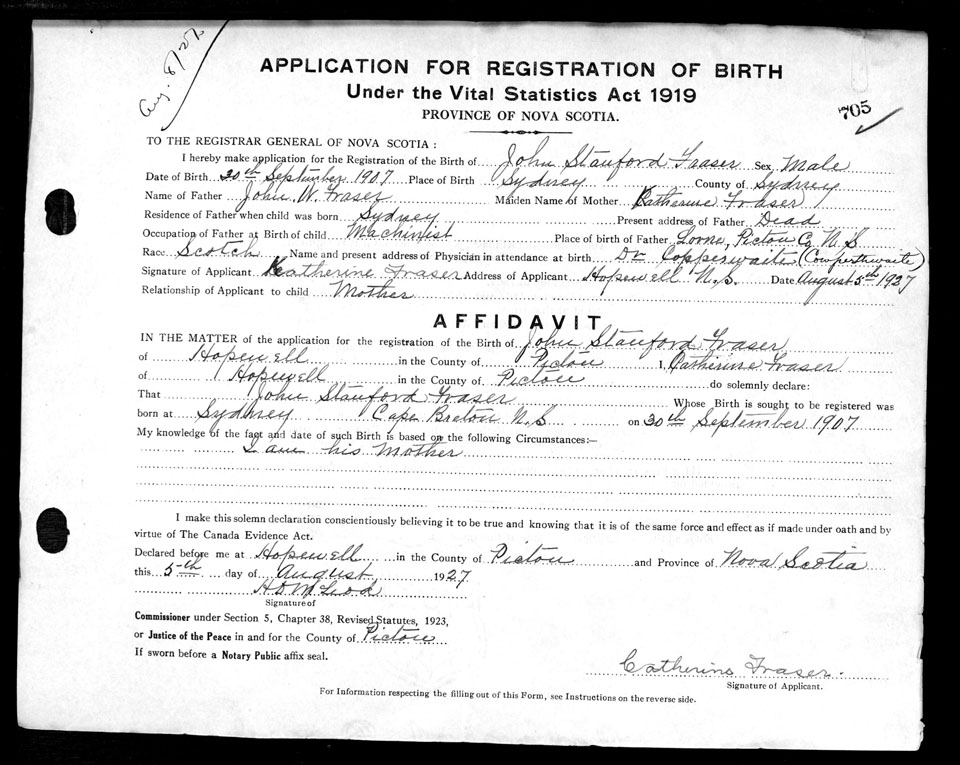 Aug. 8/27
APPLICATION FOR REGISTRATION OF BIRTH
Under the Vital Statistics Act 1919
PROVINCE OF NOVA SCOTIA.
705
TO THE REGISTRAR GENERAL OF NOVA SCOTIA :
I hereby make application for the Registration of the Birth of John Stanford Fraser Sex Male
Date of Birth 30th September 1907 Place of Birth Sydney County of Sydney
Name of Father John W. Fraser Maiden Name of Mother Katherine Fraser
Residence of Father when child was born Sydney Present address of Father Dead
Occupation of Father at Birth of child Machinist Place of birth of Father Lorne, Pictou Co N.S
Race Scotch Name and present address of Physician in attendance at birth Dr Copperwaite (Cowperthwaite)
Signature of Applicant Katherine Fraser Address of Applicant Hopewell N.S. Date August 5th 1927
Relationship of Applicant to child Mother
AFFIDAVIT
IN THE MATTER of the application for the registration of the Birth of John Stanford Fraser
of Hopewell in the County of Pictou I, Catherine Fraser
of Hopewell in the County of Pictou do solemnly declare:
That John Stanford Fraser Whose Birth is sought to be registered was
born at Sydney Cape Breton N.S on 30th September 1907
My knowledge of the fact and date of such Birth is based on the following Circumstances:—
I am his Mother
I make this solemn declaration conscientiously believing it to be true and knowing that it is of the same force and effect as if made under oath and by
virtue of The Canada Evidence Act.
Declared before me at Hopewell in the County of Pictou and Province of Nova Scotia
this 5th day of August 1927
H D McLeod
Signature of
Commissioner under Section 5, Chapter 38, Revised Statutes, 1923,
or Justice of the Peace in and for the County of Pictou
If sworn before a Notary Public affix seal.
Catherine Fraser.
Signature of Applicant.
For Information respecting the filling out of this Form, see Instructions on the reverse side.